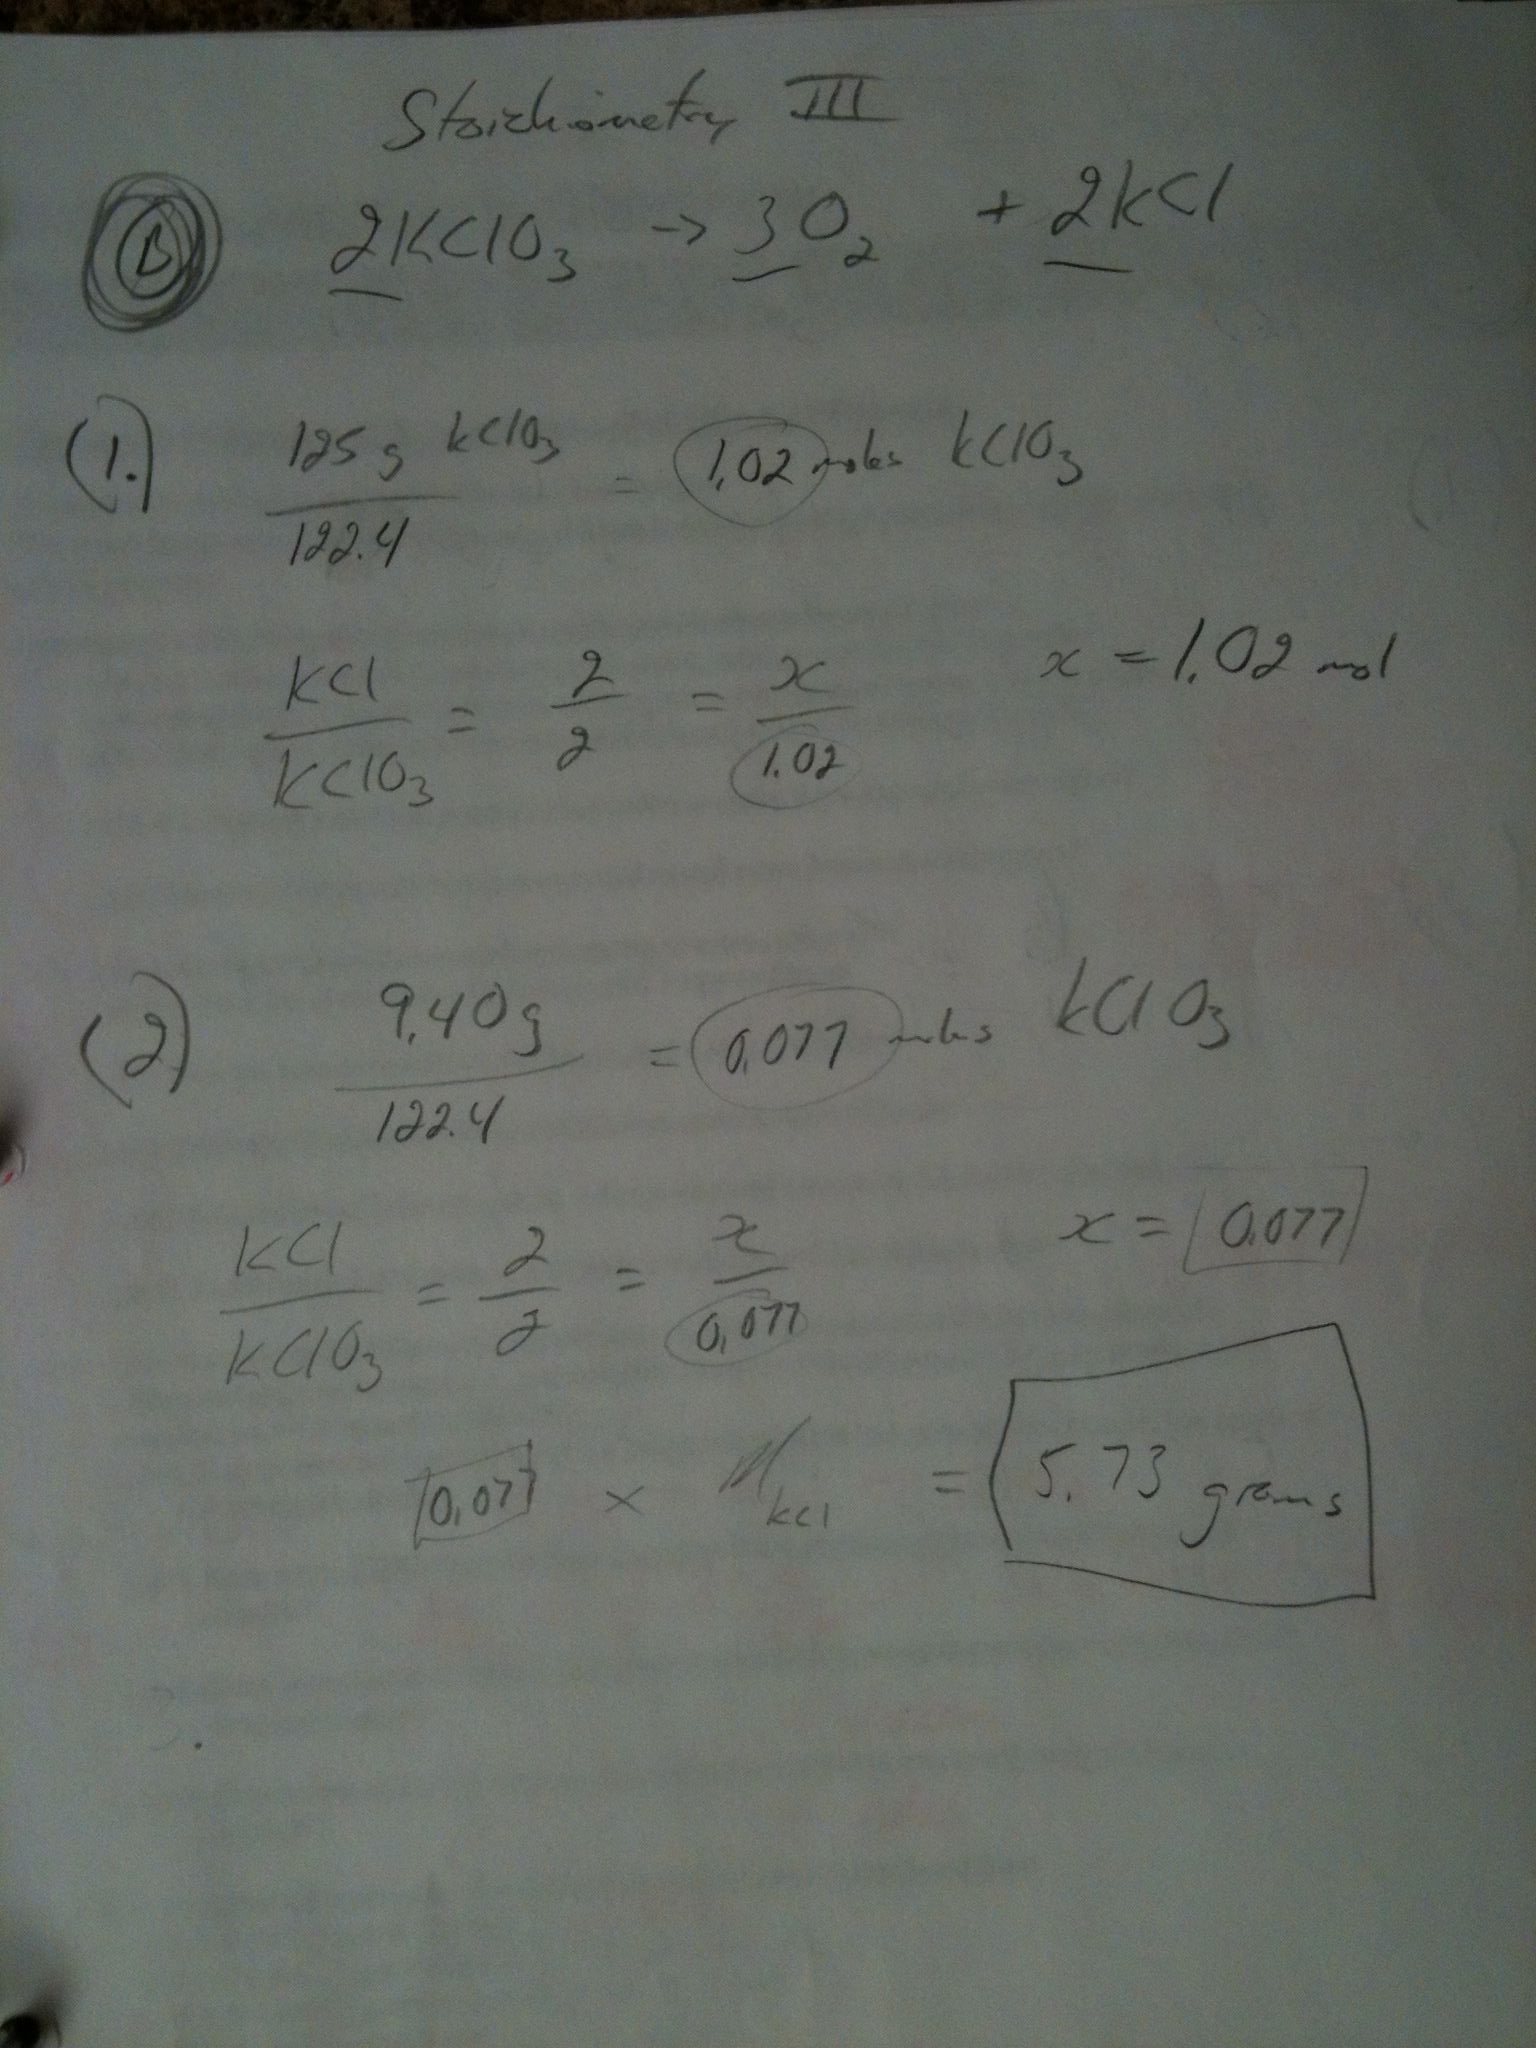 Stoichiometry III
B 2KClO₃ → 3O₂ + 2KCl
(1.) 125 g KClO₃ / 122.4 = 1.02 moles KClO₃
KCl / KClO₃ = 2 / 2 = x / 1.02 x = 1.02 mol
(2) 9.40 g / 122.4 = 0.077 moles KClO₃
KCl / KClO₃ = 2 / 2 = x / 0.077 x = 0.077
0.077 × M KCl = 5.73 grams